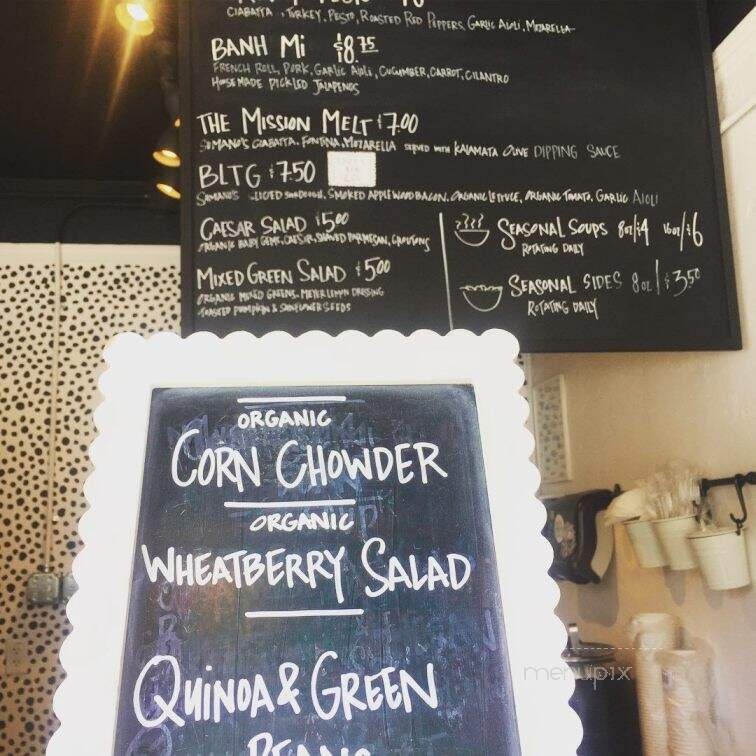 CIABATTA, TURKEY, PESTO, ROASTED RED PEPPERS, GARLIC AIOLI, MOZARELLA
BANH MI $8.75
FRENCH ROLL, PORK, GARLIC AIOLI, CUCUMBER, CARROT, CILANTRO
HOUSEMADE PICKLED JALAPENOS
THE MISSION MELT $7.00
SUMANO'S CIABATTA, FONTINA, MOZARELLA SERVED WITH KALAMATA OLIVE DIPPING SAUCE
BLTG $7.50
SUMANO'S SLICED SOURDOUGH, SMOKED APPLEWOOD BACON, ORGANIC LETTUCE, ORGANIC TOMATO, GARLIC AIOLI
CAESAR SALAD $5.00
ORGANIC BABY GEMS, CAESAR, SHAVED PARMESAN, CROUTONS
MIXED GREEN SALAD $5.00
ORGANIC MIXED GREENS, MEYER LEMON DRESSING
TOASTED PUMPKIN & SUNFLOWER SEEDS
SEASONAL SOUPS 8oz/$4 16oz/$6
ROTATING DAILY
SEASONAL SIDES 8oz/$3.50
ROTATING DAILY
ORGANIC
CORN CHOWDER
ORGANIC
WHEATBERRY SALAD
QUINOA & GREEN
BEANS
menupix